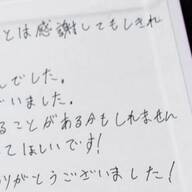 とは感謝してもしきれ
んでした。
ざいました。
ることがある分もしれません
ってほしいです!
りがとうございました!